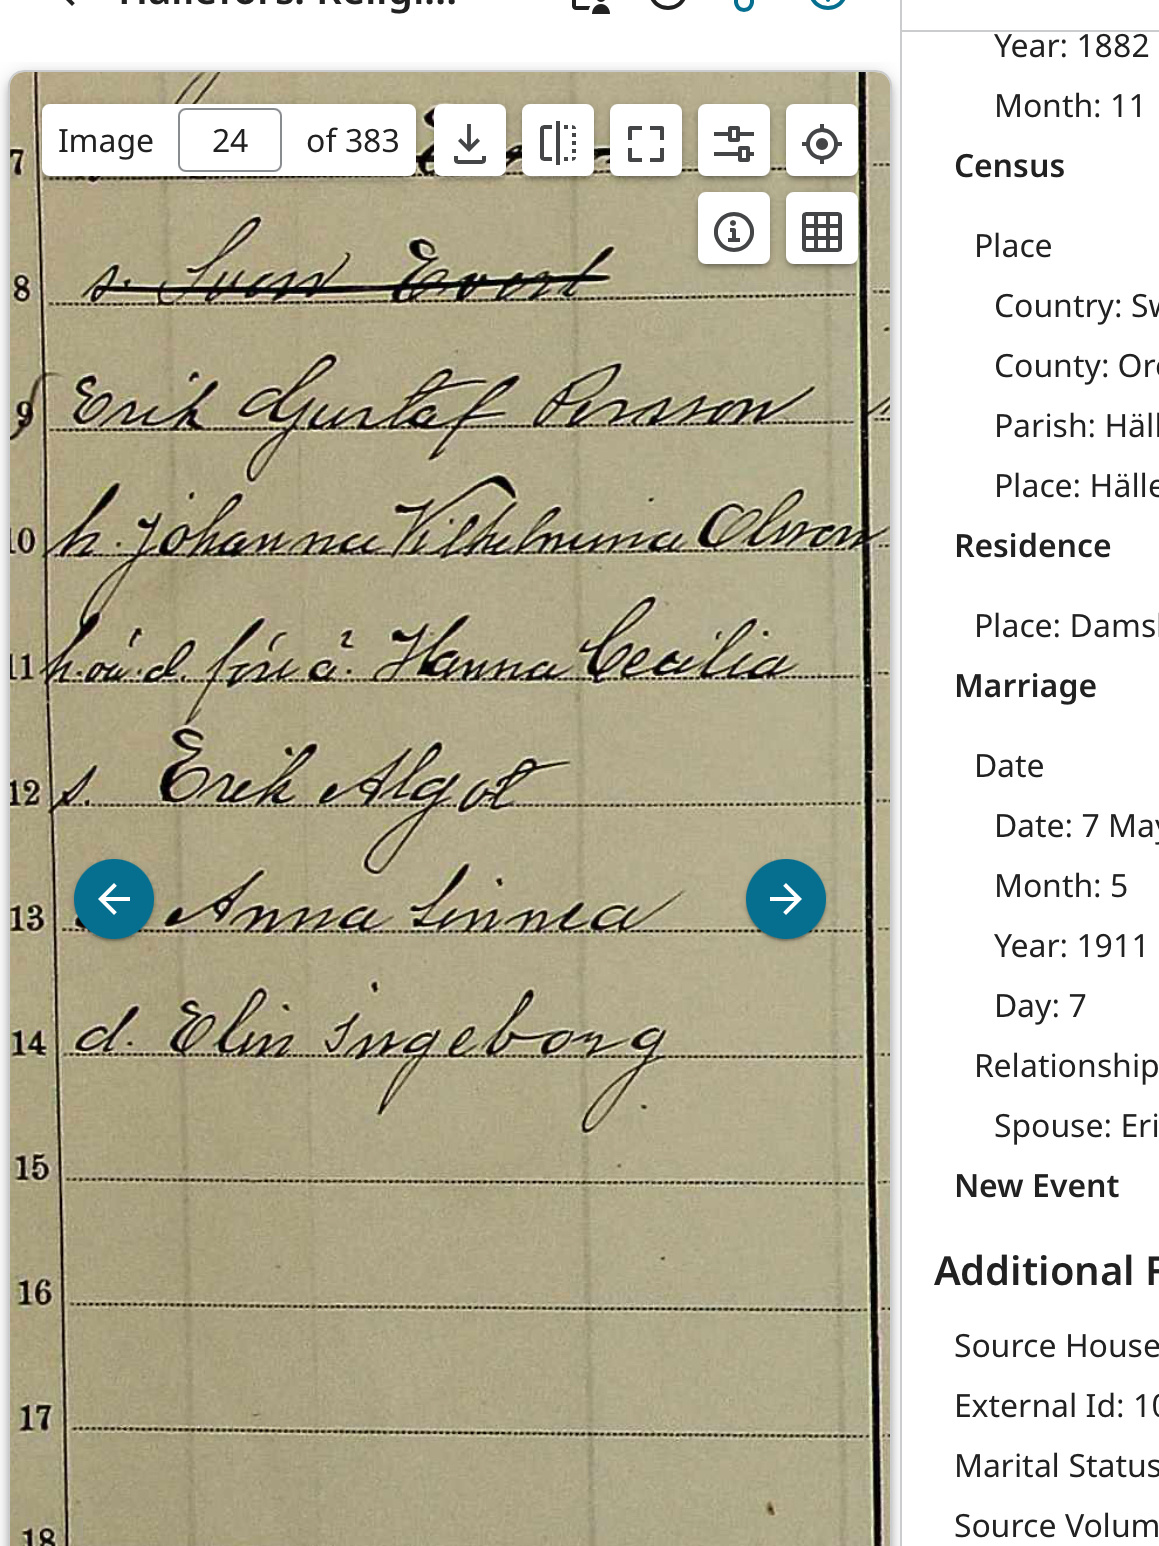 Hällefors: Religi...
Image 24 of 383
7
8 s. Sven Evert
9 Erik Gustaf Persson
10 h. Johanna Vilhelmina Olsson
11 h. o. d. före ä. Hanna Cecilia
12 s. Erik Algot
13 Anna Linnea
14 d. Elin Ingeborg
15
16
17
18
Year: 1882
Month: 11
Census
Place
Country: Sw
County: Ore
Parish: Häll
Place: Hälle
Residence
Place: Dams
Marriage
Date
Date: 7 May
Month: 5
Year: 1911
Day: 7
Relationship
Spouse: Eri
New Event
Additional F
Source House
External Id: 10
Marital Status
Source Volum